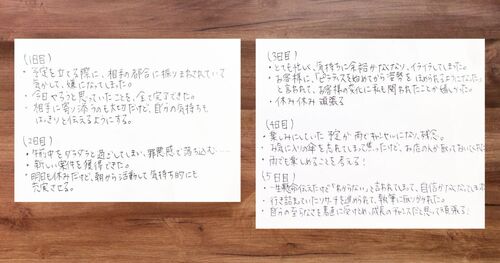 (1日目)
・予定を立てる際に、相手の都合に振りまわされていて
気がして、嫌になってしまった。
・今日やろうと思っていたことを、全て完了できた。
・相手に寄り添うのも大切だけど、自分の気持ちも
はっきりと伝えるようにする。
(2日目)
・午前中をダラダラと過ごしてしまい、罪悪感で落ち込む……
・新しい案件を獲得できた。
・明日も休みだけど、朝から活動して気持ち的にも
充実させる。
(3日目)
・とても忙しく、気持ちに余裕がなくなり、イライラしてしまった。
・お客様に、「ピラティスを始めてから姿勢をほめられるようになった」
と言われて、お客様の変化に私も関われたことが嬉しかった。
・休み休み頑張る
(4日目)
・楽しみにしていた予定が雨でおじゃんになり、残念。
・お気に入りの傘を忘れてしまって焦ったけど、お店の人が取っておいてくれた
・雨でも楽しめることを考える!
(5日目)
・一生懸命伝えたけど「わからない」と言われてしまって、自信がなくなってしまった
・行き詰まっていたリサーチを進められて、執筆に取りかかれた。
・自分の至らなさを素直に受けとめ、成長のチャンスだと思って頑張る!